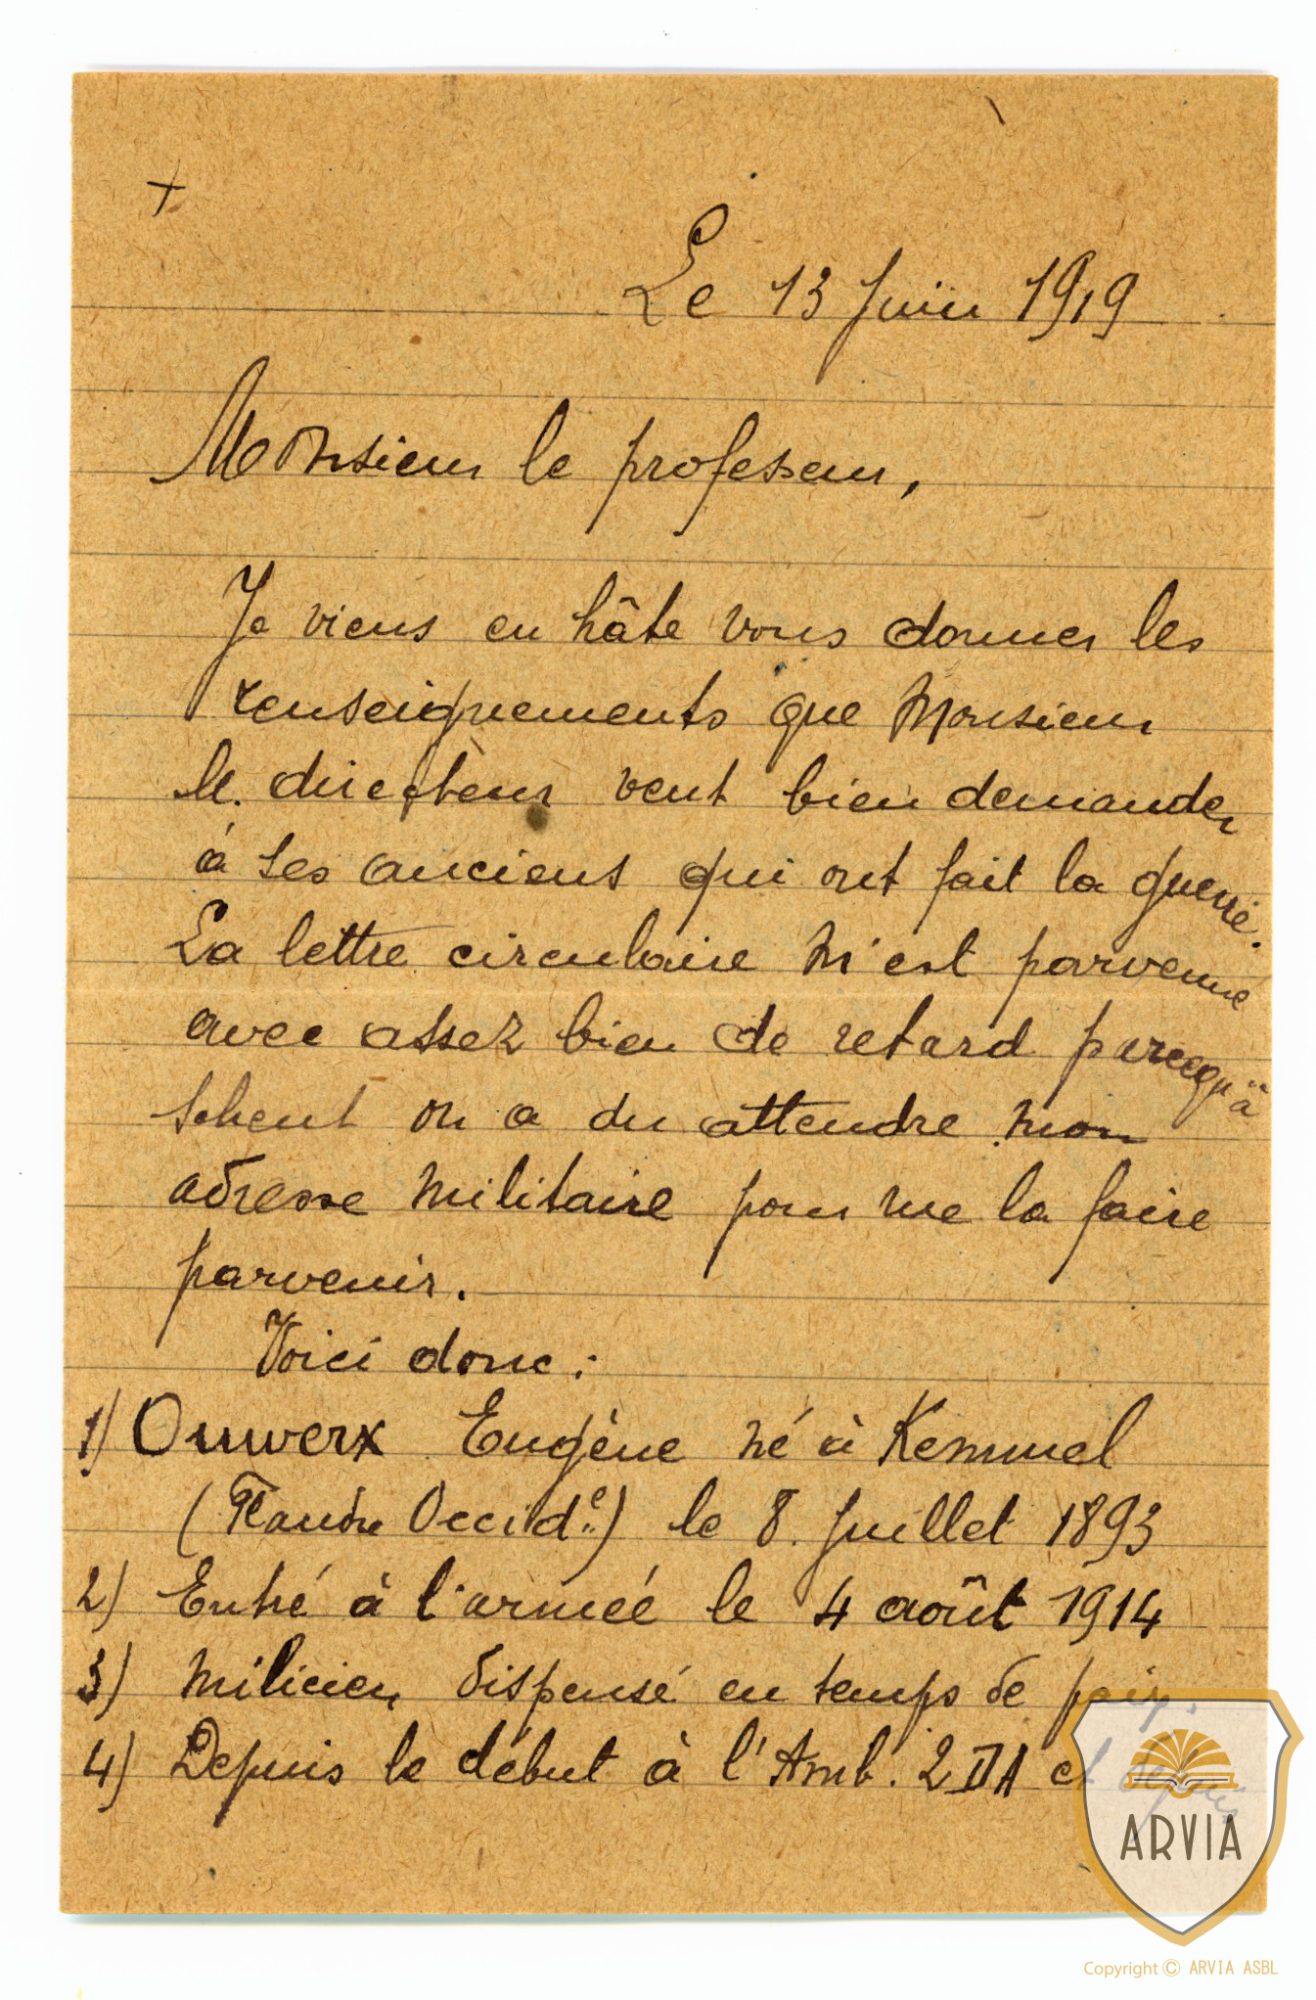 +
Le 13 juin 1919
Monsieur le professeur,
Je viens en hâte vous donner les
renseignements que Monsieur
le directeur veut bien demander
à ses anciens qui ont fait la guerre.
La lettre circulaire m'est parvenue
avec assez bien de retard parcequ'à
Scheut on a du attendre mon
adresse militaire pour me la faire
parvenir.
Voici donc :
1) Ouwerx Eugène né à Kemmel
(Flandre Occid.e) le 8 juillet 1893
2) Entré à l'armée le 4 août 1914
3) Milicien dispensé en temps de paix.
4) Depuis le début à l'Amb. 2 DA et depuis
ARVIA
Copyright © ARVIA ASBL